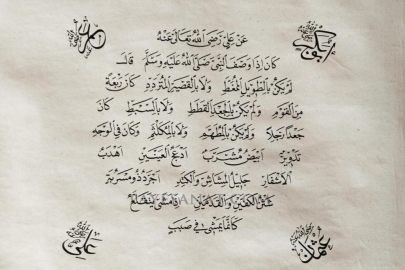 عن علي رضي الله تعالى عنه
كان إذا وصف النبي صلى الله عليه وسلم قال
لم يكن بالطويل الممغط ولا بالقصير المتردد كان ربعة
من القوم ولم يكن بالجعد القطط ولا بالسبط كان
جعدا رجلا ولم يكن بالمطهم ولا بالمكلثم وكان في الوجه
تدوير أبيض مشرب أدعج العينين أهدب
الأشفار جليل المشاش والكتد أجرد ذو مسربة
شثن الكفين والقدمين إذا مشى يتقلع
كأنما يمشي في صبب
أبو بكر
عمر
عثمان
علي